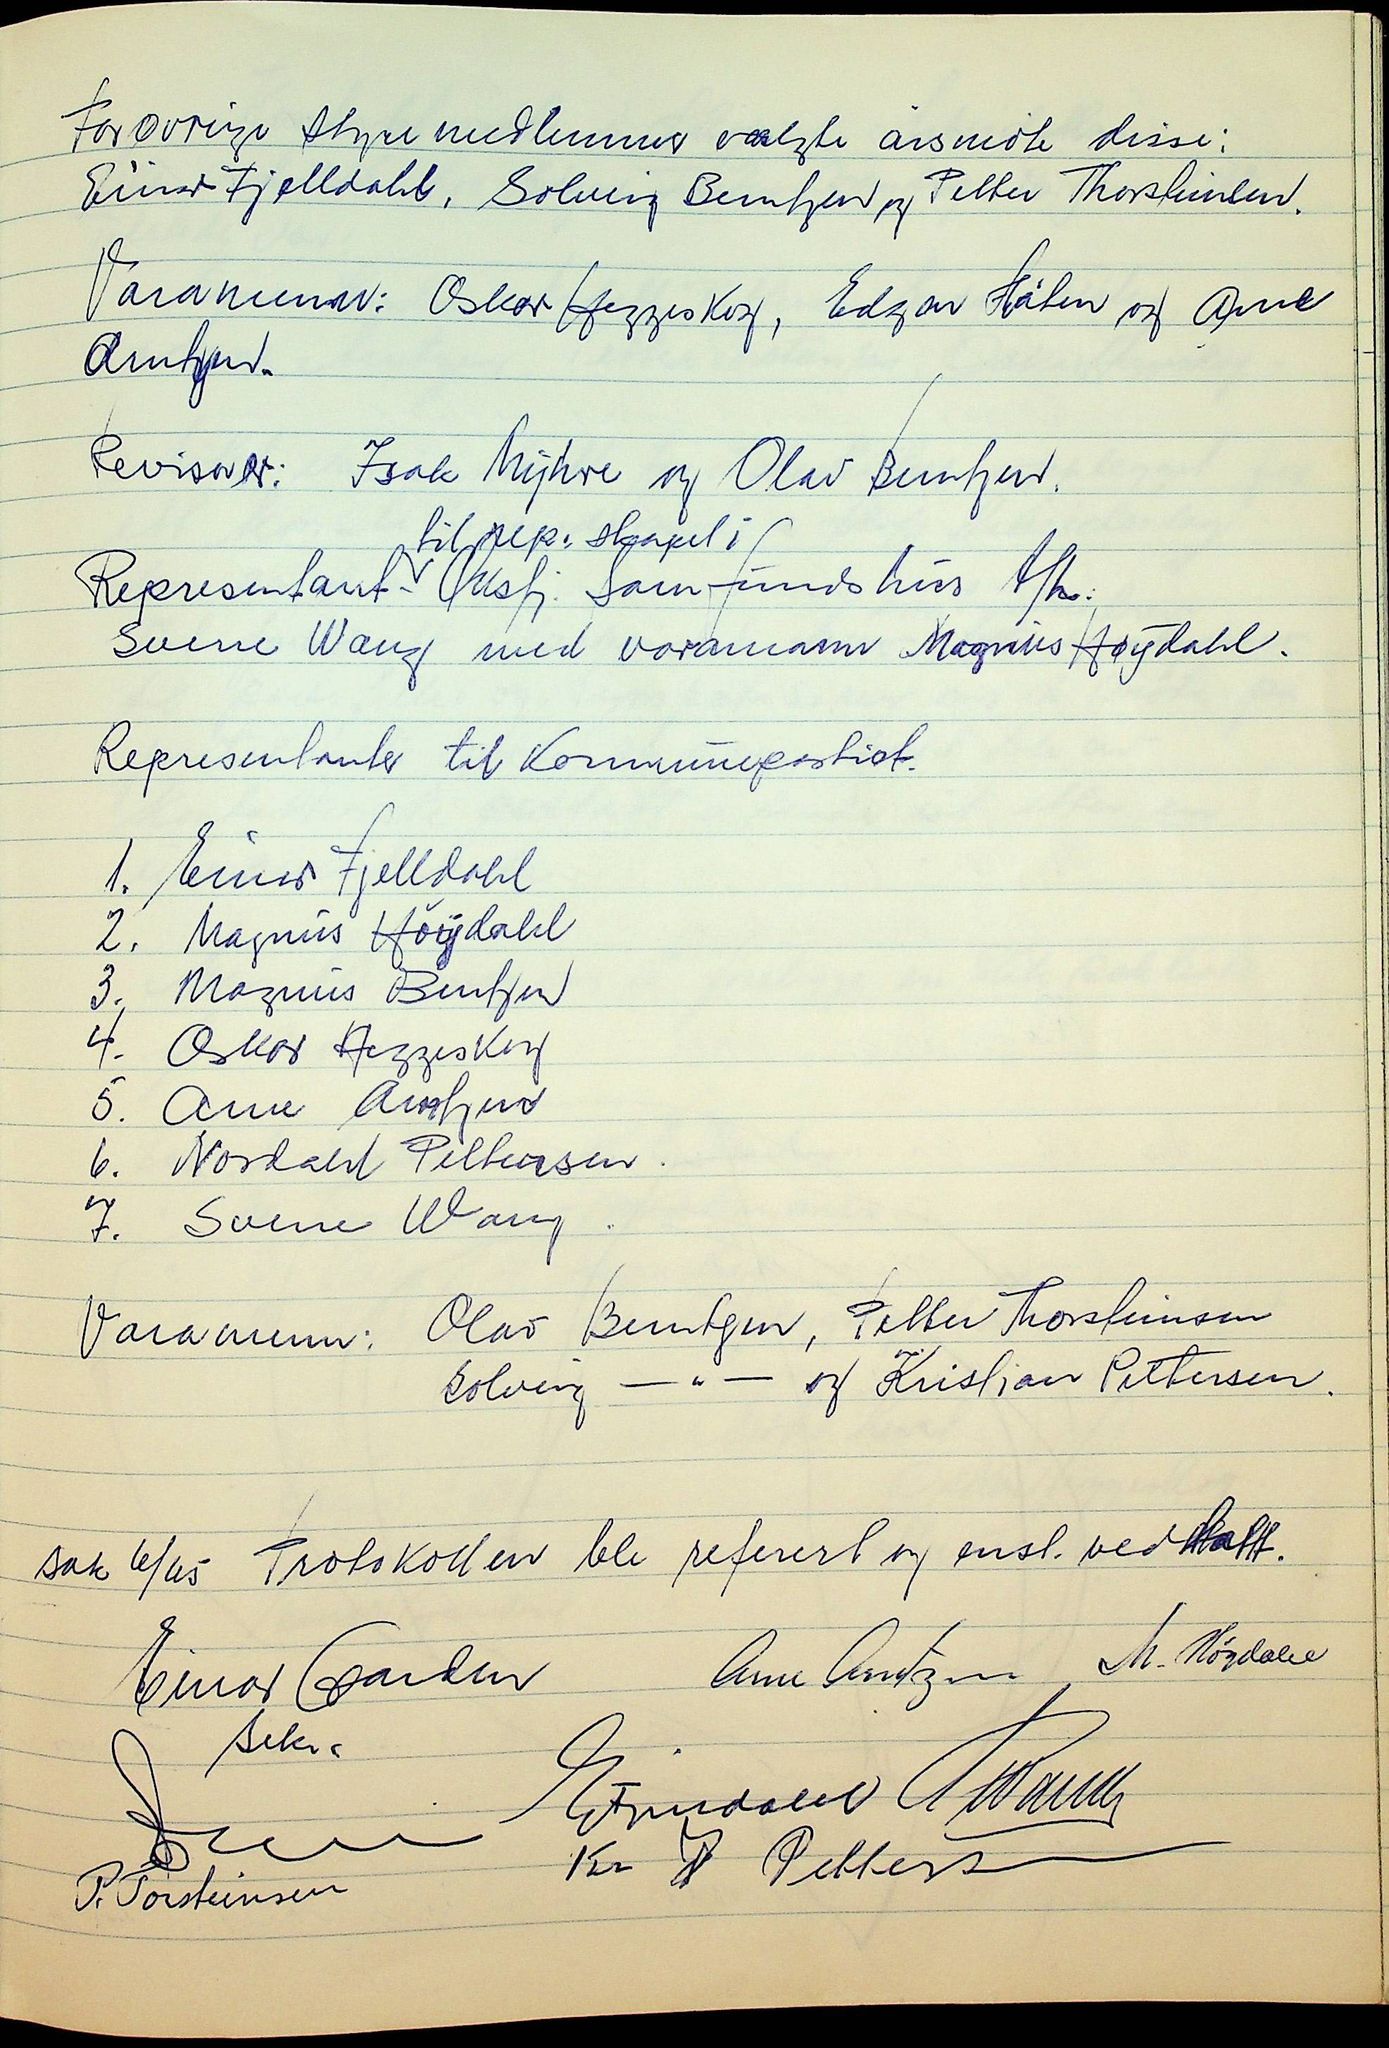 For øvrige styremedlemmer valgte årsmøte disse:
Einar Fjelldahl, Solveig Berntzen og Petter Thorsteinsen.
Varamenn: Oskar Heggeskog, Edgar Håten og Arne
Arntzen.
Revisorer: Isak Myhre og Olav Berntzen.
til rep. skapet i
Representant Oksfj. Samfundshus A/L.:
Sverre Wang med varamann Magnus Høgdahl.
Representanter til Kommunepartiet.
1. Einar Fjelldahl
2. Magnus Høgdahl
3. Magnus Berntzen
4. Oskar Heggeskog
5. Arne Arntzen
6. Nordahl Pettersen.
7. Sverre Wang.
Varamenn: Olav Berntzen, Petter Thorsteinsen
Solveig — " — og Kristian Pettersen.
sak 6/65 Protokollen ble referert og enst. vedtatt.
Einar Garden Arne Arntzen M. Høgdahl
sekr.
E Fjelldahl S Wang
Kr Pettersen
P. Torsteinsen